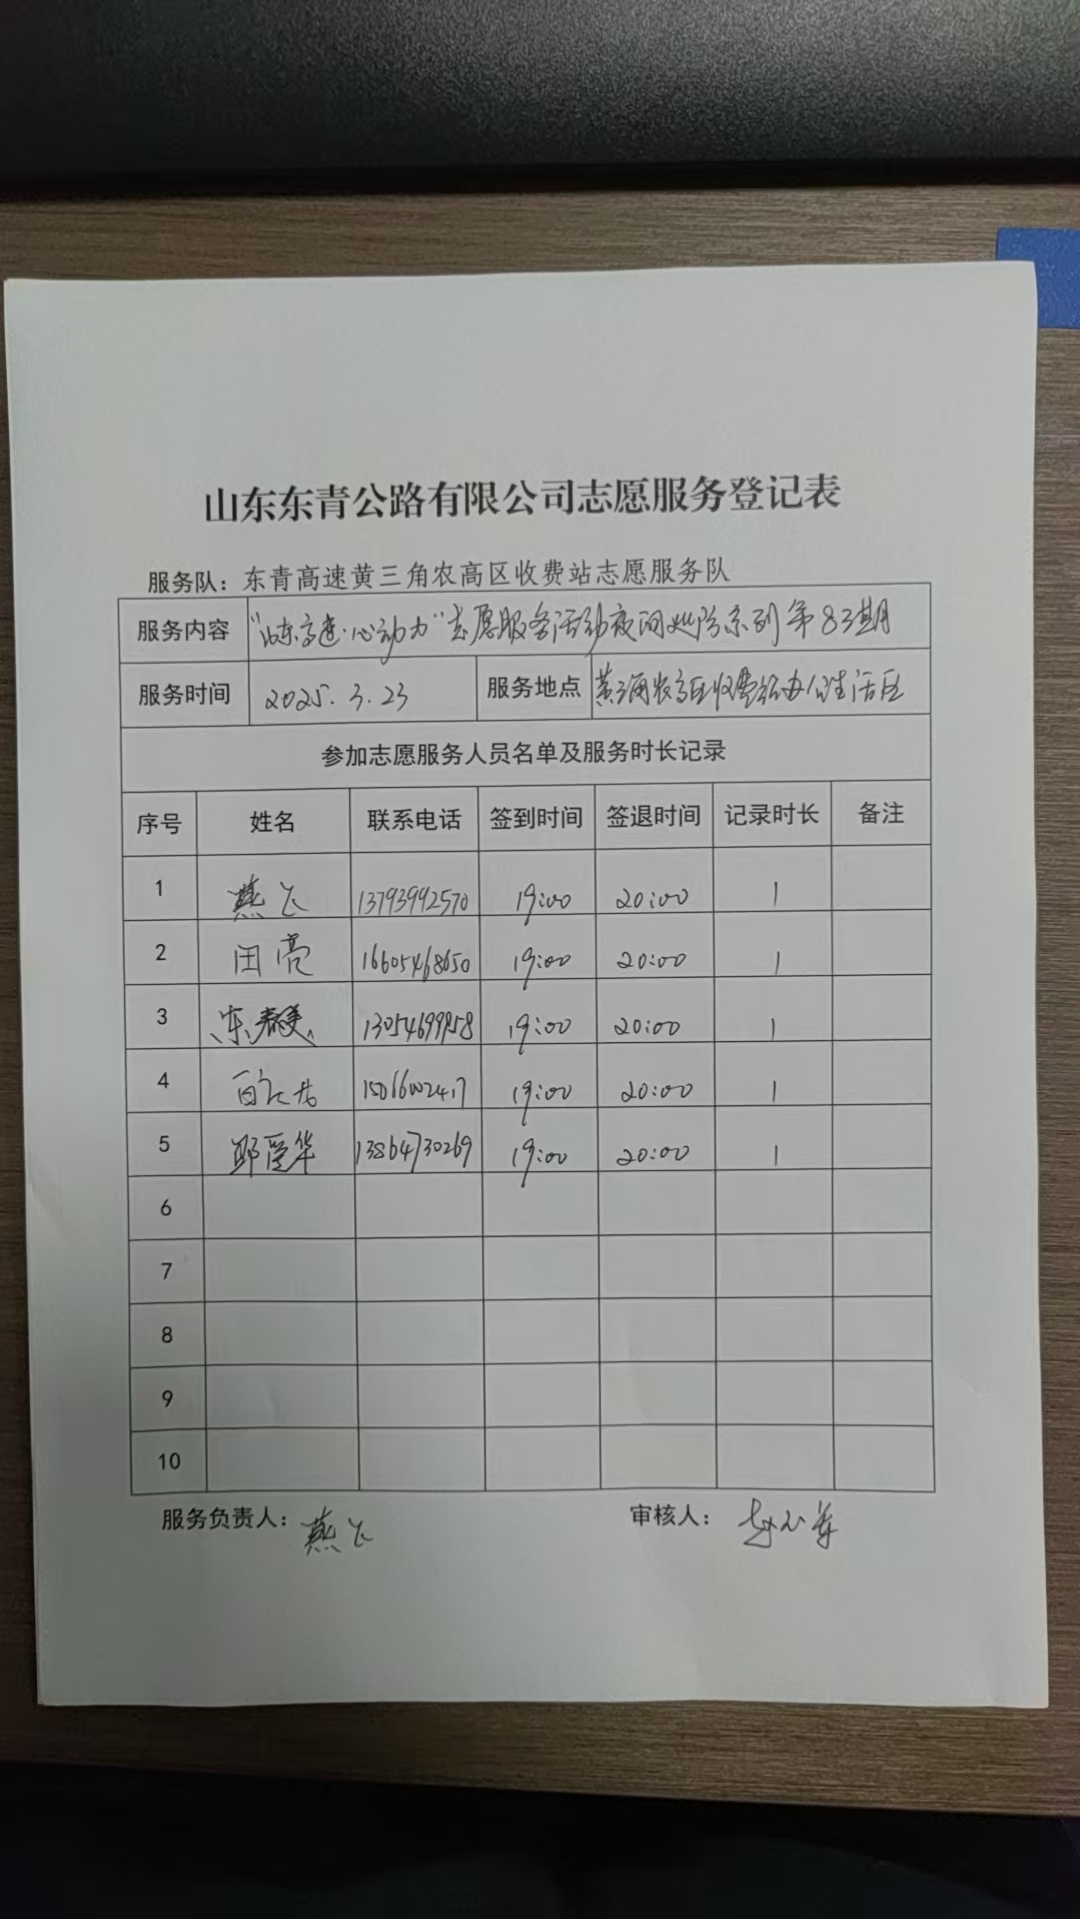 山东东青公路有限公司志愿服务登记表
服务队：东青高速黄三角农高区收费站志愿服务队
服务内容 "山东高速·心动力"志愿服务活动夜间 系列第83期
服务时间 2025.3.23 服务地点 黄三角农高区收费站办公生活区
参加志愿服务人员名单及服务时长记录
序号 姓名 联系电话 签到时间 签退时间 记录时长 备注
1 燕飞 13793992570 19:00 20:00 1
2 田亮 16605468650 19:00 20:00 1
3 宋春美 13054699958 19:00 20:00 1
4 19:00 20:00 1
5 13864730269 19:00 20:00 1
6
7
8
9
10
服务负责人：燕飞 审核人：